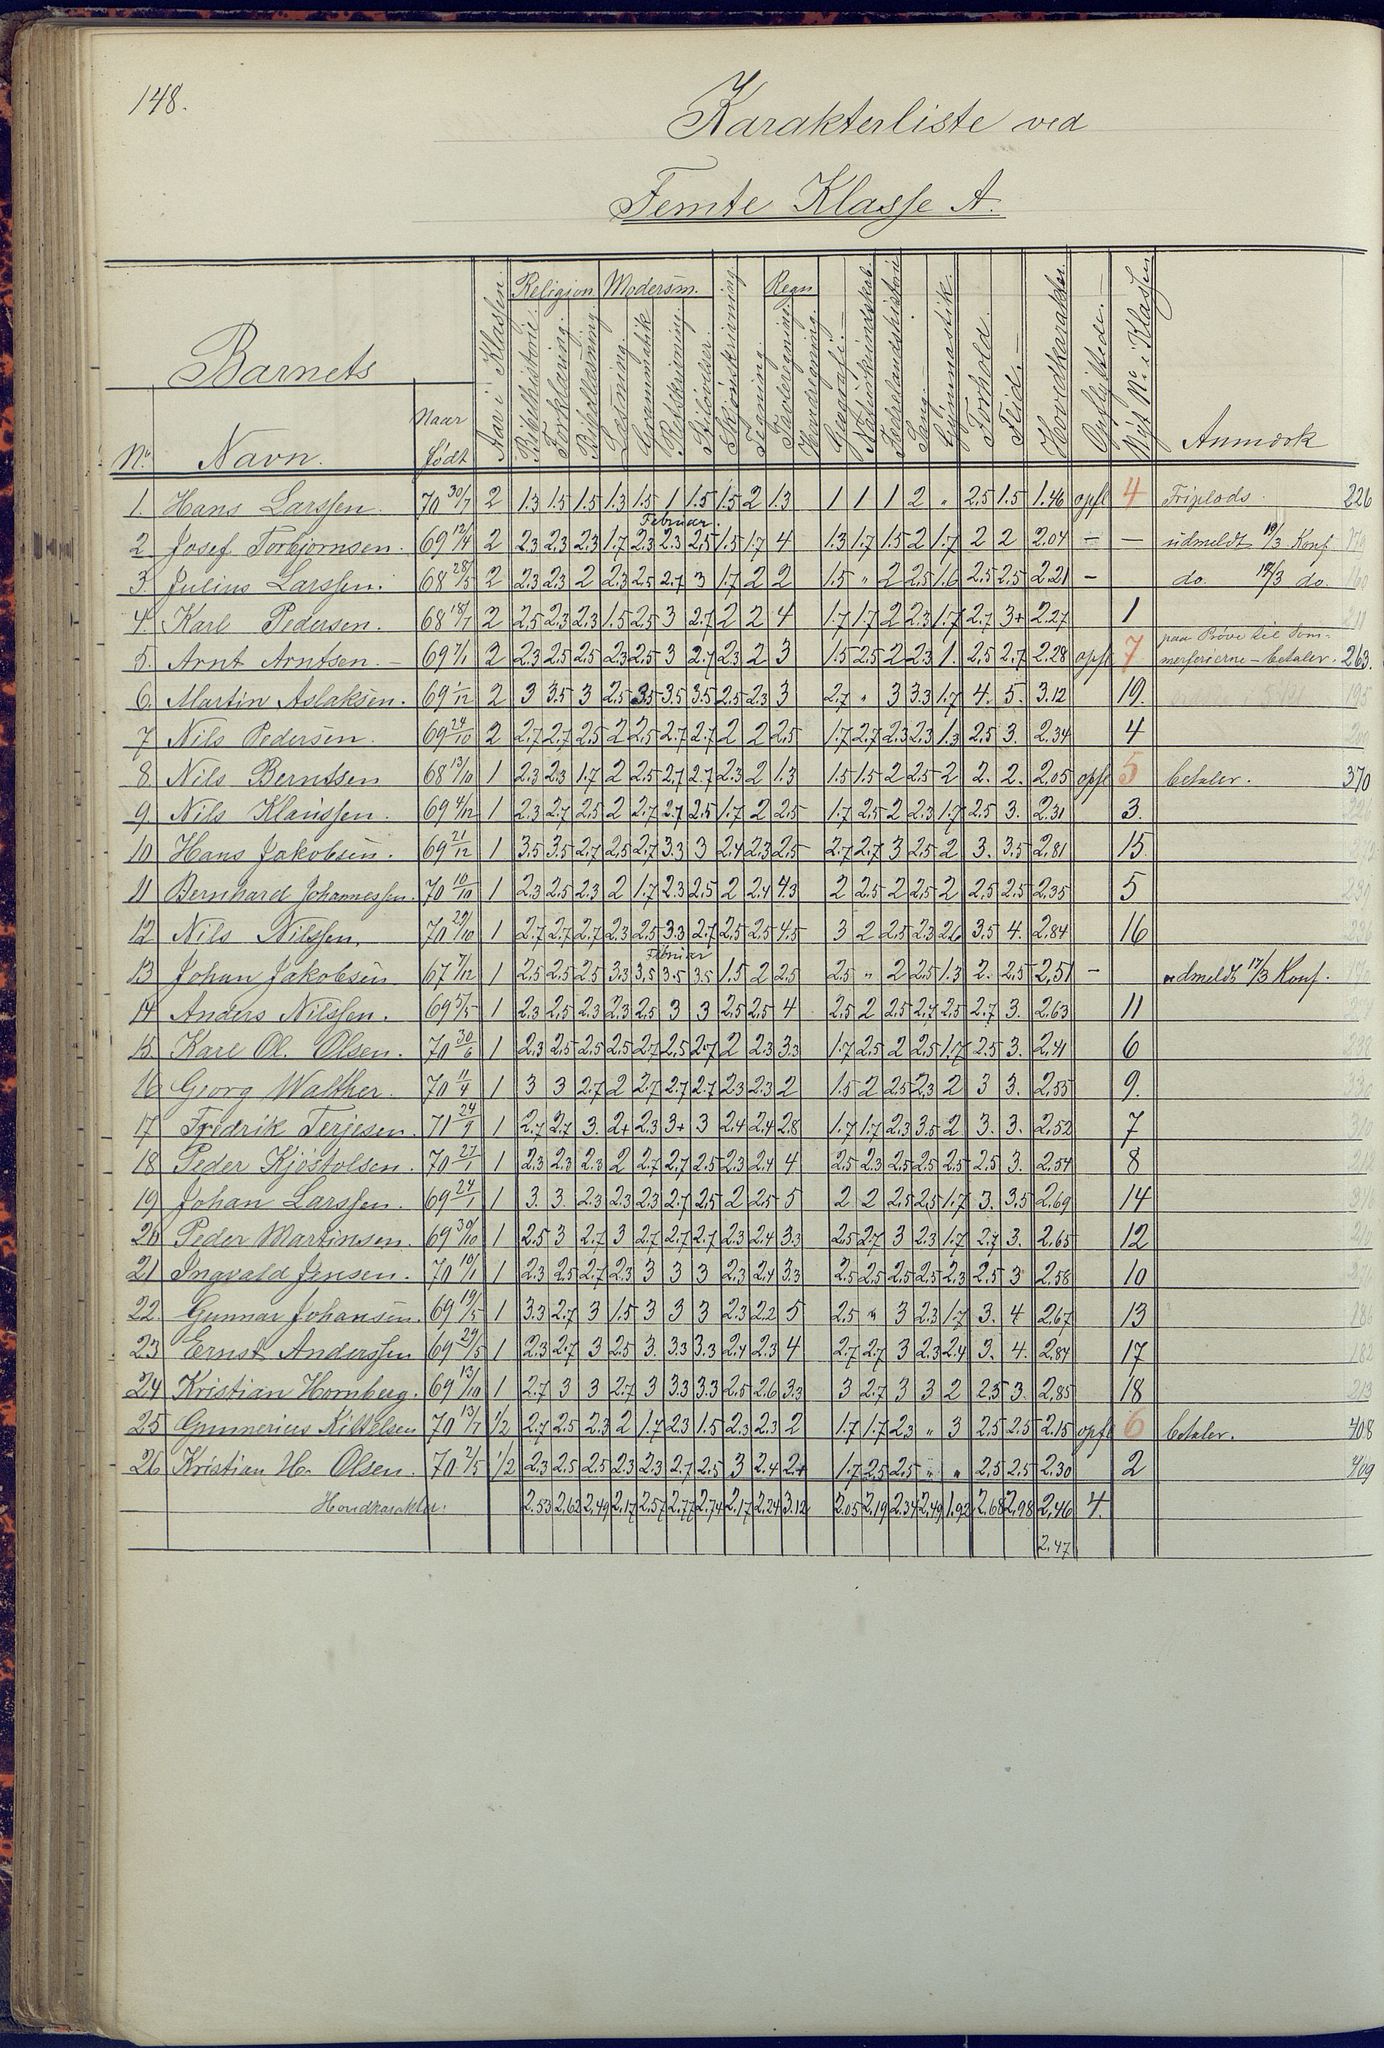 148.
Karakterliste ved
Femte Klasse A.
Barnets
No. Navn. Naar født Aar i Klassen. Religion Bibelhistorie Forklaring. Bibellæsning. Modersm. Læsning. Grammatik Retskrivning. Stiløvelser. Skjønskrivning Tegning. Regn Tavleregning. Hovedregning. Geografi. Naturkundskab. Fædrelandshistorie Sang Gymnastik. Forhold. Flid. Hovedkarakter. Opflyttede. Nyt No. i Klassen Anmærk
1. Hans Larssen. 70 30/7 2 1.3 1.5 1.5 1.3 1.5 1 1.5 1.5 2 1.3 1 1 1 2 " 2.5 1.5 1.46 opfl 4 Friplads. 226
Februar.
2 Josef Torbjørnsen. 69 12/4 2 2.3 2.3 2.3 1.7 2.3 2.3 2.5 1.5 1.7 4 1.3 1.7 1.5 2 1.7 2 2 2.04 – – udmeldt 19/3 Konf.
3. Julius Larssen. 68 28/5 2 2.3 2.3 2 2.3 2.5 2.7 3 1.7 2 2 1.5 " 2 2.5 1.6 2.5 2.5 2.21 – do. 19/3 do. 160
4. Karl Pedersen. 68 18/7 2 2.5 2.3 2.3 1.5 2.5 3 2.7 2 2 4 1.7 1.7 2 2.3 1.7 2.7 3+ 2.27 1 211
5. Arnt Arntsen. – 69 7/1 2 2.3 2.5 2.5 2.3 2.5 3 2.7 2.3 2 3 1.5 2.5 2 2.3 1. 2.5 2.7 2.28 opfl 7 paa Prøve til Som-
merferierne – betaler. 263.
6. Martin Aslaksen. 69 1/12 2 3 3.5 3 2.5 3.5 3.5 3.5 2.5 2.3 3 2.7 " 3 3.3 1.7 4. 5. 3.12 19. 195
7 Nils Pedersen. 69 24/10 2 2.7 2.7 2.5 2 2.5 2.7 2.7 2 2 2.5 1.7 2.7 2.3 2.3 1.3 2.5 3. 2.34 4
8. Nils Berntsen 68 13/10 1 2.3 2.3 1.7 2 2.5 2.7 2.7 2.3 2 1.3 1.5 1.5 2 2.5 2 2. 2. 2.05 opfl 5 betaler. 370
9 Nils Klaussen. 69 4/12 1 2.3 2.7 2.5 2 2.7 2.7 2.5 1.7 2 2.5 1.7 2.5 2 2.3 1.7 2.5 3. 2.31 3.
10 Hans Jakobsen. 69 21/12 1 3.5 3.5 2.7 2.5 2.7 3.3 3 2.4 2.3 2.5 2.7 2.7 3 2.5 2 3. 3.5 2.81 15.
11 Bernhard Johannessen. 70 10/10 1 2.3 2.5 2.3 2 1.7 2.3 2.5 2 2.4 4.3 2 2.5 2 2.5 2 2.5 2.5 2.35 5
12 Nils Nilssen. 70 29/10 1 2.7 2.7 2.7 2.3 2.5 3.3 2.7 2.5 2.5 4.5 3 2 2.5 2.3 2.6 3.5 4. 2.84 16 236
Februar
13 Johan Jakobsen 67 7/12 1 2.5 2.5 2.5 3.3 3.5 3.5 3.5 1.5 2 2.5 2.5 " 2 2.5 1.3 2. 2.5 2.51 – udmeldt 17/3 Konf.
14 Anders Nilssen. 69 5/5 1 2.3 2.5 2.3 2.3 2.5 3 3 2.5 2.5 4 2.5 2 2.5 2.7 2.5 2.7 3. 2.63 11
15. Karl Ol. Olsen. 70 30/6 1 2.3 2.5 2.5 2.5 2.7 2.5 2.7 2 2.3 3.3 1.7 2.5 2 2.5 1.7 2.5 3. 2.41 6
16 Georg Walther. 70 11/4 1 3 3 2.7 2 2.7 2.7 2.7 2.3 2.3 2 1.5 2 2.5 2.3 2 3 3. 2.55 9.
17 Fredrik Terjesen. 71 24/9 1 2.7 2.7 3. 2+ 2.3 3+ 3 2.4 2.4 2.8 1.7 1.7 2.3 3.5 2 3. 3. 2.52 7
18 Peder Kjøstolsen. 70 27/1 1 2.3 2.3 2.3 2 2.7 2.7 2.5 2.3 2.4 4 2.5 2.3 2.5 2.5 2.5 2.5 3. 2.54 8 212
19 Johan Larssen. 69 24/1 1 3. 3. 2.3 2.3 2.3 2.7 2.5 2 2.5 5 2 2 2.5 2.5 1.7 3. 3.5 2.69 14
20 Peder Martinsen. 69 30/10 1 2.5 3 2.7 3 2.7 2.7 2.7 2.3 2.4 3.3 2.5 2.7 3 2.3 1.7 2.7 3. 2.65 12 210
21 Ingvald Jensen. 70 10/1 1 2.3 2.5 2.7 2.3 3 3 3 2.3 2.4 3.3 2.5 2.5 2.5 2.5 2.3 2.5 3 2.58 10
22. Gunnar Johansen. 69 19/5 1 3.3 2.7 3 1.5 3 3 3 2.3 2.2 5 2.5 " 3 2.3 1.7 3. 4 2.67 13 186
23 Ernst Anderssen 69 29/5 1 2.3 2.7 3 2.5 3. 3.3 3.3 2.4 2.3 4 2.7 2.7 3 2.3 2.4 3. 4. 2.84 17 182
24 Kristian Hornberg. 69 13/10 1 2.7 3 3 2.7 3 3.3 3.3 2.5 2.6 3.3 3 2.7 3 3 2 2.5 3. 2.85 18 213
25 Gunnerius Kittelsen 70 13/7 1/2 2.7 2.5 2.3 2 1.7 2.3 1.5 2.3 2.3 2 1.7 1.7 2.3 " 3 2.5 2.5 2.15 opfl 6 betaler. 408
26 Kristian H. Olsen. 70 2/5 1/2 2.3 2.5 2.5 2.3 2.3 2.7 2.5 3 2.4 2+ 1.7 2.5 2.5 " " 2.5 2.5 2.30 2 409
Hovedkarakter: 2.53 2.62 2.49 2.17 2.57 2.77 2.74 2.17 2.24 3.12 2.05 2.19 2.34 2.49 1.92 2.68 2.98 2.46 4.
2.47